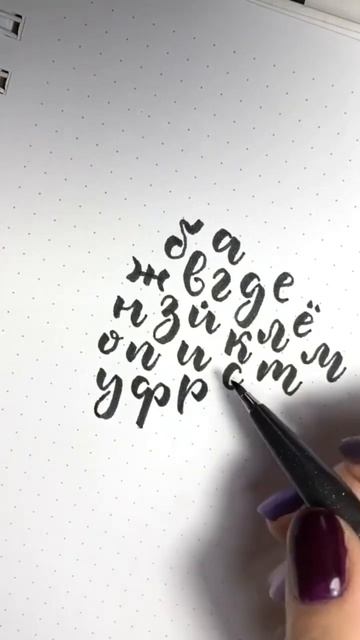 б а
ж в г д е
н з й к л ё
о п и с т м
у ф р